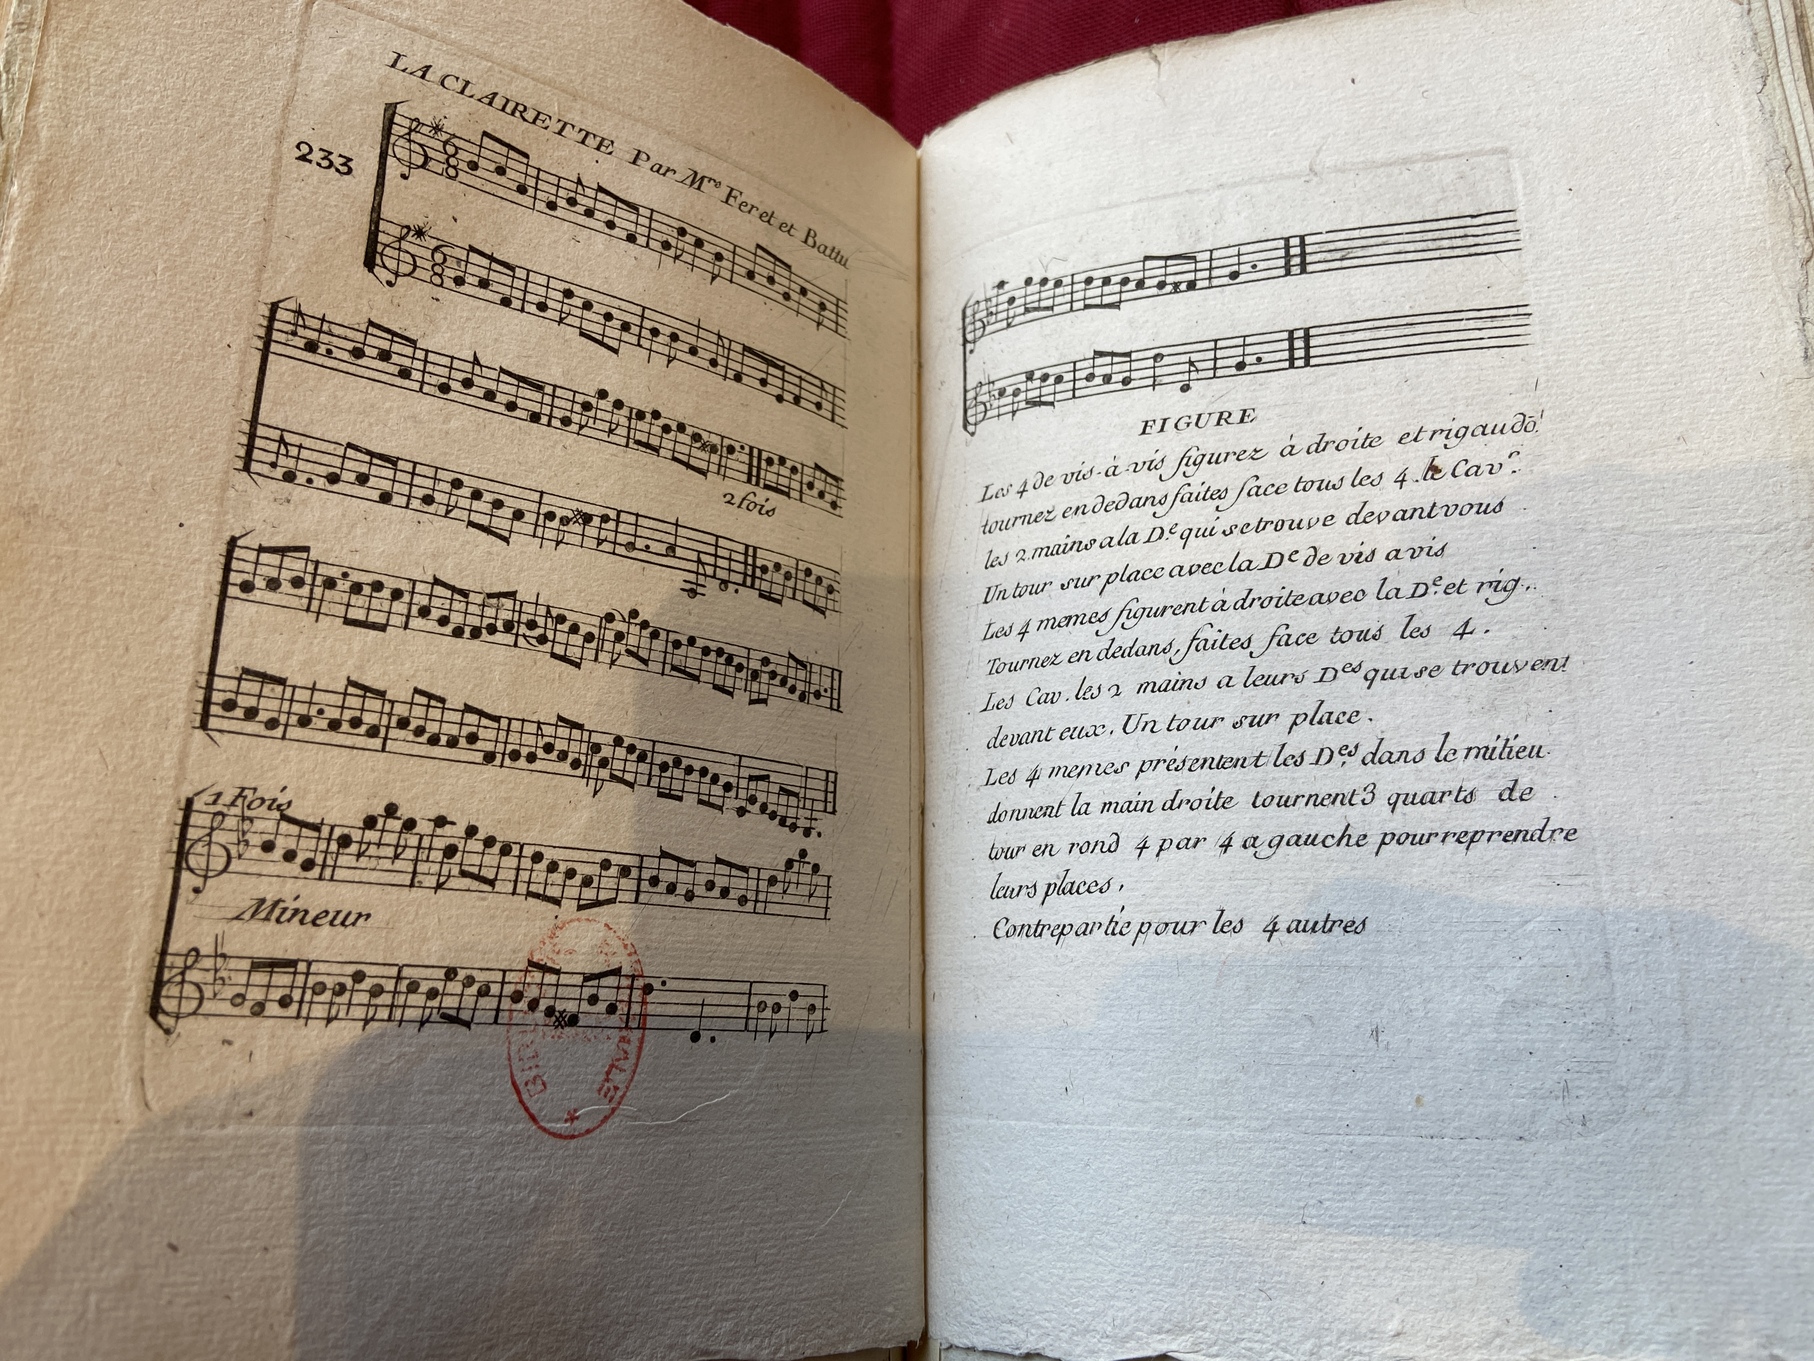 LA CLAIRETTE Par Mrs Feret et Battu
233
2 fois
1 Fois
Mineur
FIGURE
Les 4 de vis-à-vis figurez à droite et rigaudō!
tournez en dedans faites face tous les 4. le Cavr.
les 2. mains a la De qui se trouve devant vous
Un tour sur place avec la De de vis a vis
Les 4 memes figurent à droite avec la De. et rig.
Tournez en dedans, faites face tous les 4.
Les Cav. les 2 mains a leurs Des qui se trouvent
devant eux. Un tour sur place.
Les 4 memes présentent les Des. dans le milieu
donnent la main droite tournent 3 quarts de
tour en rond 4 par 4 a gauche pour reprendre
leurs places,
Contrepartie pour les 4 autres